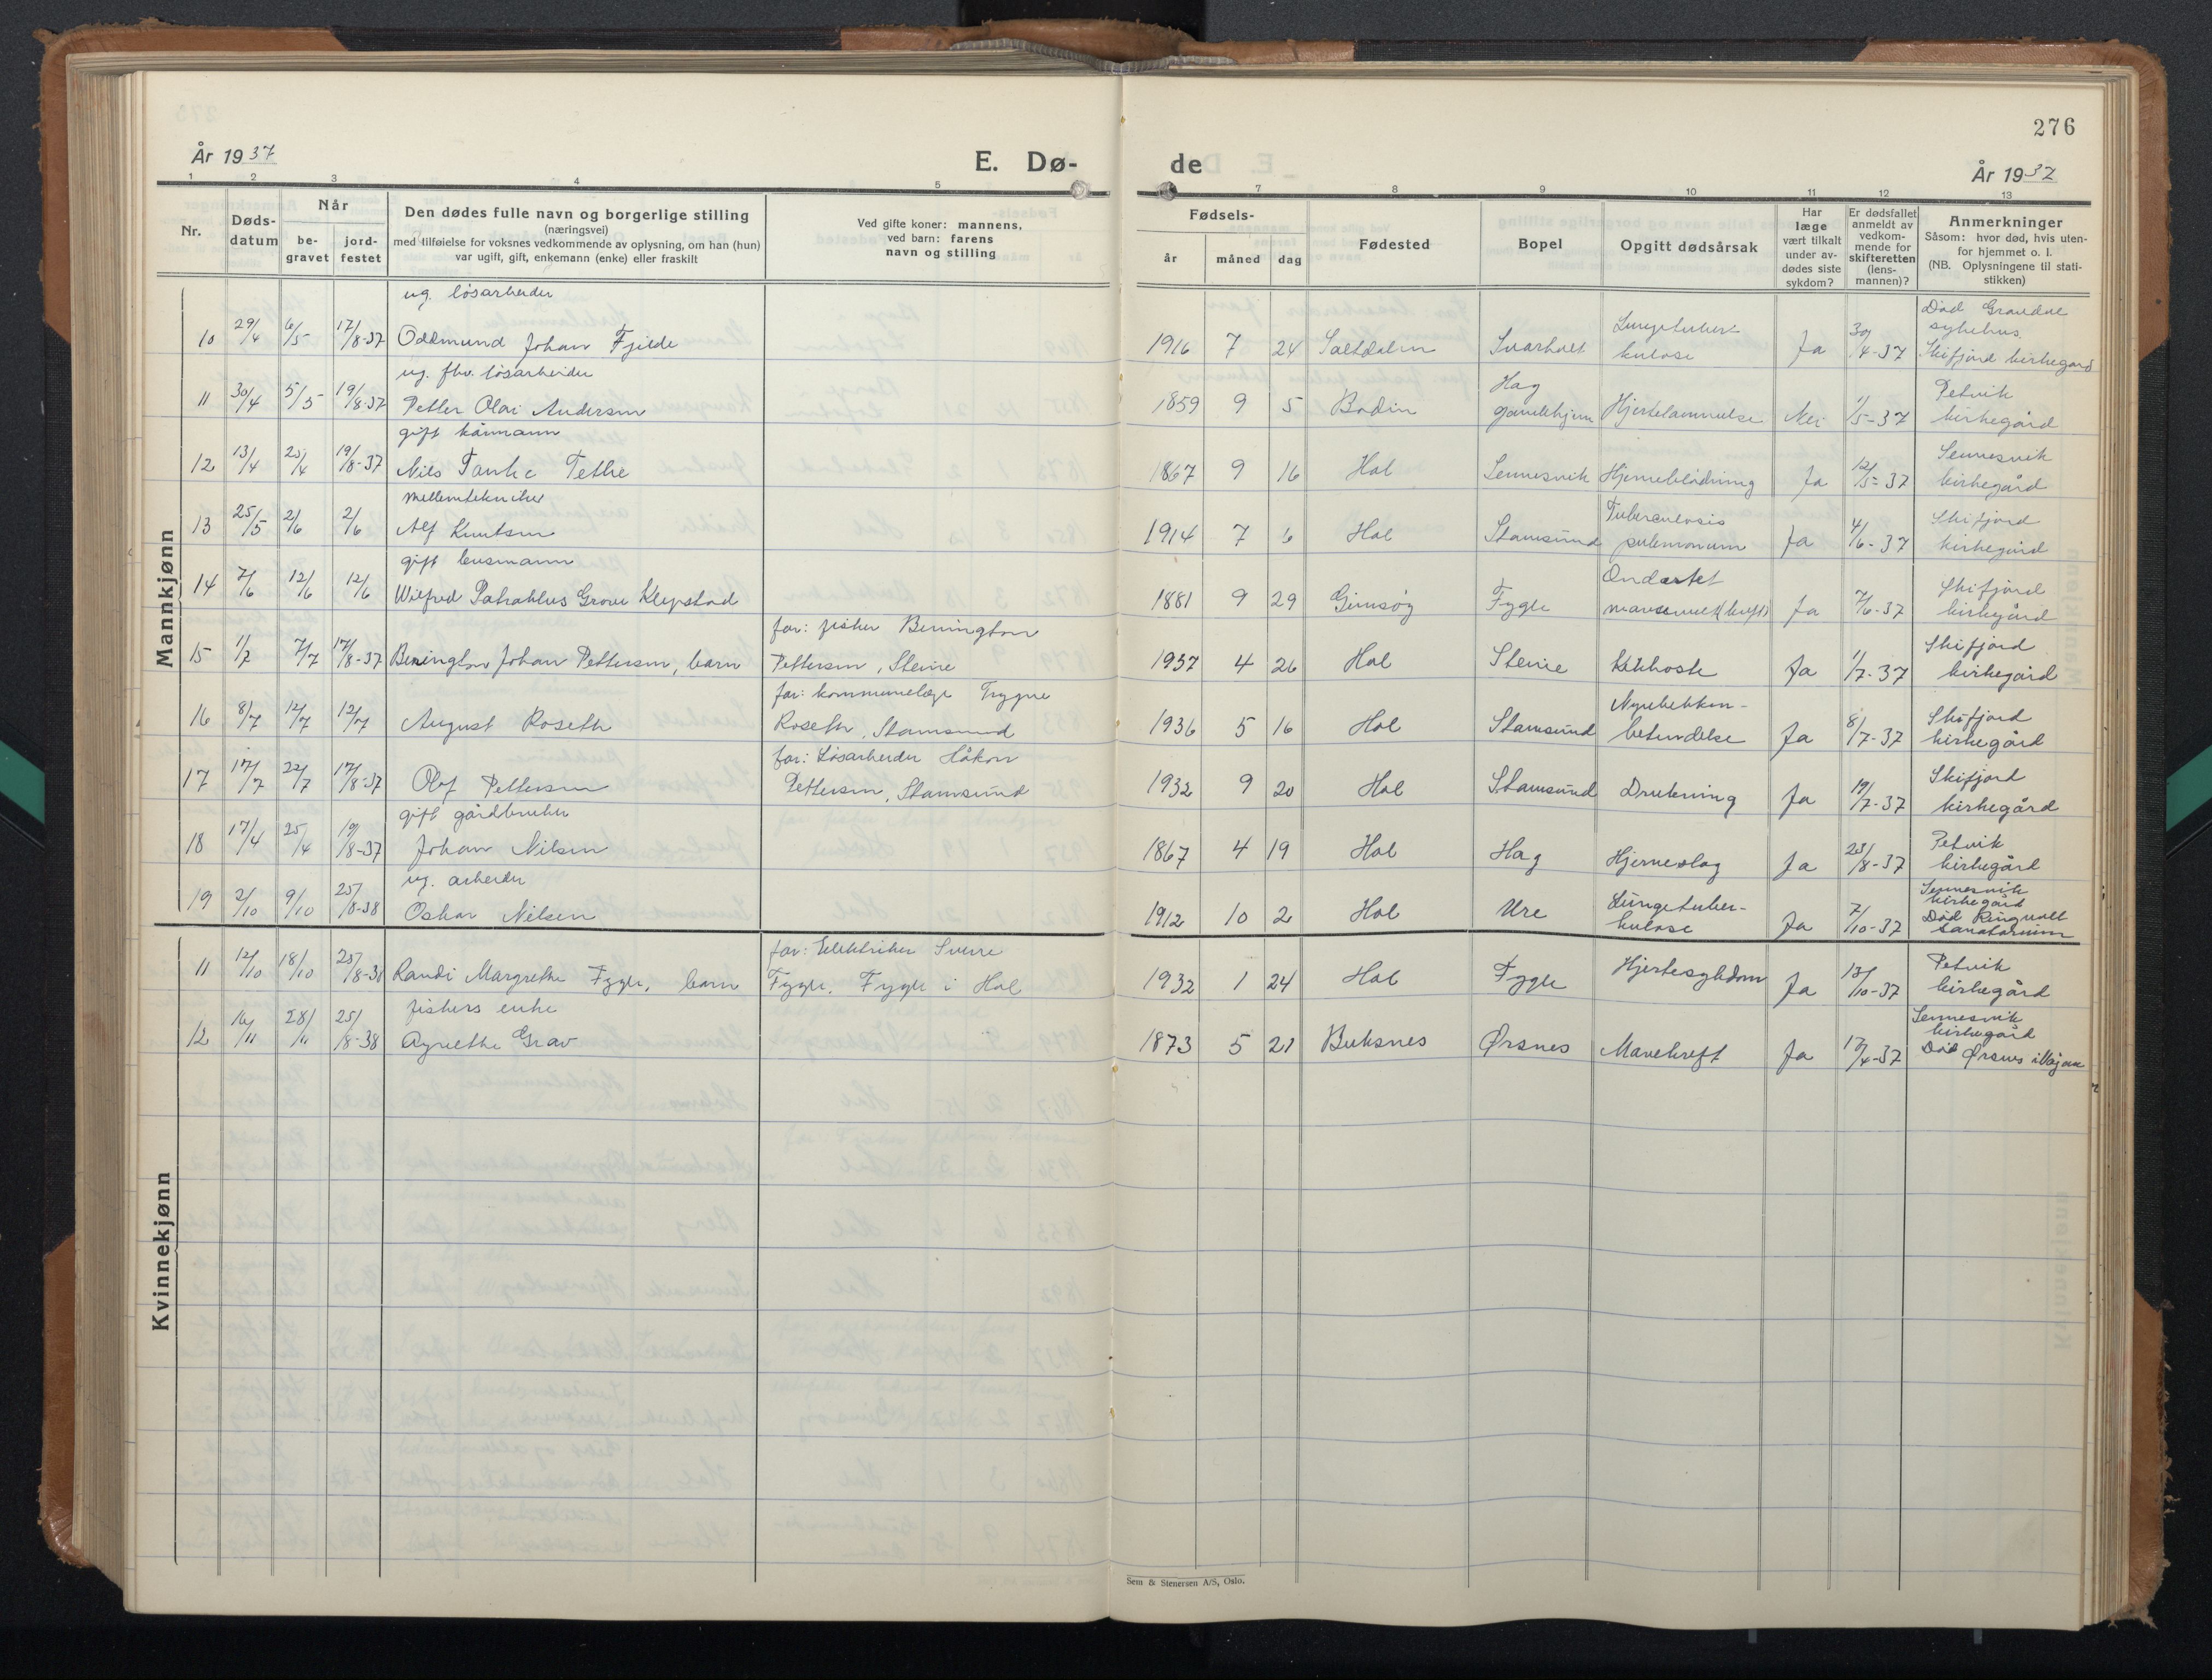 276
År 1937
E. Dø-
de
År 1937
1 2 3 4 5 7 8 9 10 11 12 13
Nr.
Døds-
datum
Når
be-
gravet
jord-
festet
Den dødes fulle navn og borgerlige stilling
(næringsvei)
med tilføielse for voksnes vedkommende av oplysning, om han (hun)
var ugift, gift, enkemann (enke) eller fraskilt
Ved gifte koner: mannens,
ved barn: farens
navn og stilling
Fødsels-
år måned dag
Fødested
Bopel
Opgitt dødsårsak
Har
læge
vært tilkalt
under av-
dødes siste
sykdom?
Er dødsfallet
anmeldt av
vedkom-
mende for
skifteretten
(lens-
mannen)?
Anmerkninger
Såsom: hvor død, hvis uten-
for hjemmet o. l.
(NB. Oplysningene til stati-
stikken)
Mankjønn
ug. løsarbeider
10 29/4 6/5 17/8-37 Oddmund Johan Fjelde
1916 7 24 Saltdalen Svarholt Lungetuber-
kulose Ja 30/4-37
Død Gravdal
sykehus.
Skifjord kirkegård
ug. fhv. løsarbeider
11 30/4 5/5 19/8-37 Petter Olai Andersen
1859 9 5 Bodin Hag
gamlehjem Hjertelammelse Nei 1/5-37
Petvik
kirkegård
gift kårmann
12 13/4 25/4 19/8-37 Nils Tanke Tethe
1867 9 16 Hol Sennesvik Hjerneblødning Ja 12/5-37
Sennesvik
kirkegård
mellemtekniker
13 25/5 2/6 2/6 Alf Knutsen
1914 7 6 Hol Stamsund Tuberculosis
pulmonum Ja 4/6-37
Skifjord
kirkegård
gift lensmann
14 7/6 12/6 12/6 Wilfred Patroklus Grove Klepstad
1881 9 29 Gimsøy Fygle Ondartet
(kreft) Ja 7/6-37
Skifjord
kirkegård
15 1/7 7/7 17/8-37 Benington Johan Pettersen, barn
far: fisker Benington
Pettersen, Steine
1937 4 26 Hol Steine Kikhoste Ja 1/7-37
Skifjord
kirkegård
16 8/7 12/7 12/7 August Roseth
far: kommunelæge Trygve
Roseth, Stamsund
1936 5 16 Hol Stamsund Nyrebekken-
betendelse Ja 8/7-37
Skifjord
kirkegård
17 17/7 22/7 17/8-37 Olaf Pettersen
far: Løsarbeider Håkon
Pettersen, Stamsund
1932 9 20 Hol Stamsund Drukning Ja 19/7-37
Skifjord
kirkegård
gift gårdbruker
18 17/4 25/4 19/8-37 Johan Nilsen
1867 4 19 Hol Hag Hjerneslag Ja 25/8-37
Petvik
kirkegård
ug. arbeider
19 2/10 9/10 25/8-38 Oskar Nilsen
1912 10 2 Hol Ure Lungetuber-
kulose Ja 7/10-37
Sennesvik
kirkegård
Død Ringvoll
sanatorium
Kvinnekjønn
11 12/10 18/10 25/8-38 Randi Margrethe Fygle, barn
far: Elektriker Sverre
Fygle, Fygle i Hol
1932 1 24 Hol Fygle Hjertesykdom Ja 13/10-37
Petvik
kirkegård
fiskers enke
12 16/11 28/11 25/8-38 Agnethe Grav
1873 5 21 Buksnes Ørsnes Mavekreft Ja 17/4-37
Sennesvik
kirkegård
Død Ørsnes i Vågan
Sem & Stenersen A/S, Oslo.